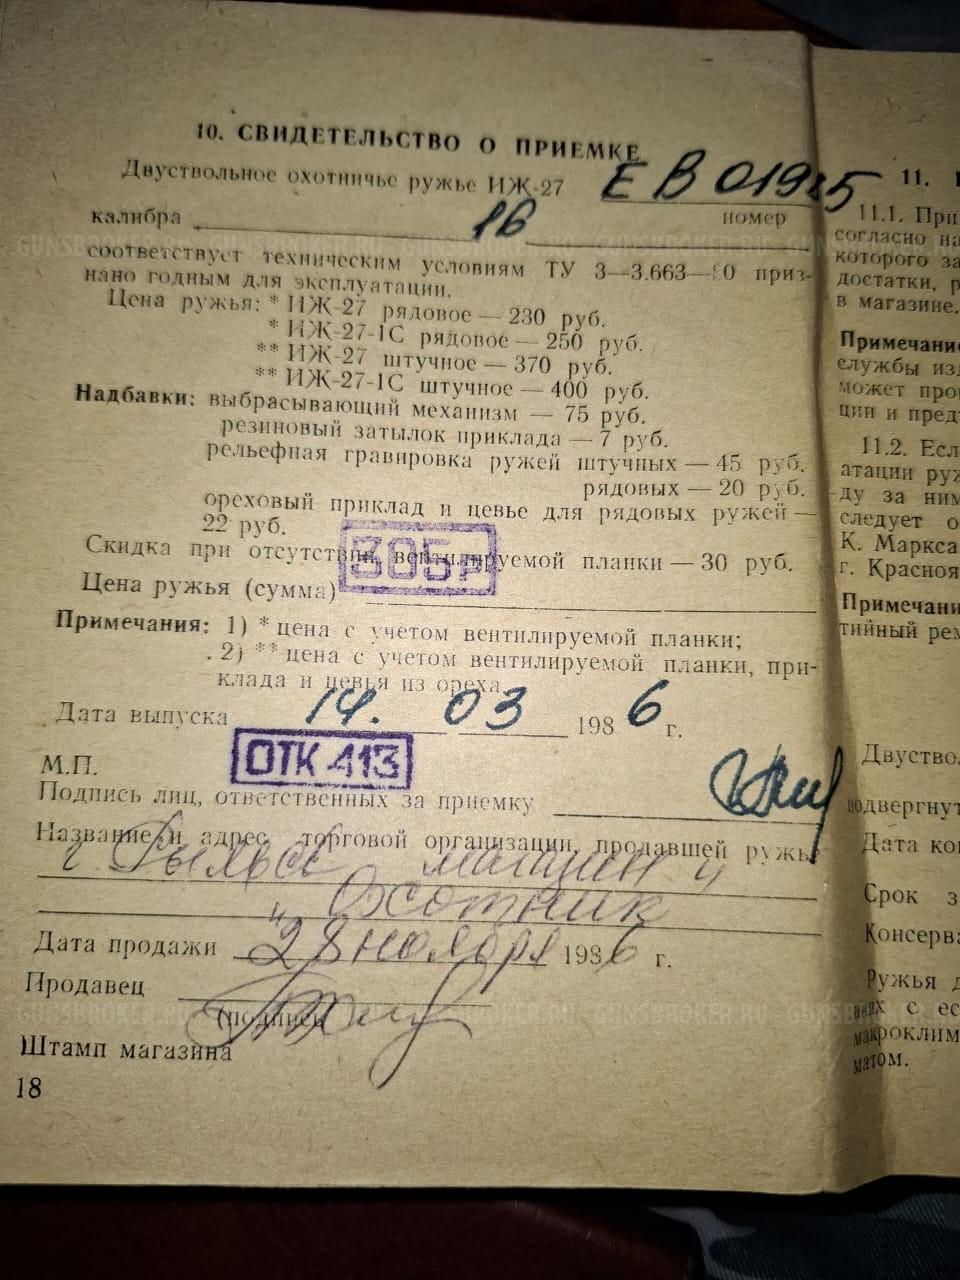 10. СВИДЕТЕЛЬСТВО О ПРИЕМКЕ
Двуствольное охотничье ружье ИЖ-27
калибра 16 номер
соответствует техническим условиям ТУ 3—3.663— приз-
нано годным для эксплуатации.
Цена ружья: * ИЖ-27 рядовое — 230 руб.
* ИЖ-27-1С рядовое — 250 руб.
** ИЖ-27 штучное — 370 руб.
** ИЖ-27-1С штучное — 400 руб.
Надбавки: выбрасывающий механизм — 75 руб.
резиновый затылок приклада — 7 руб.
рельефная гравировка ружей штучных — 45 руб.
рядовых — 20 руб.
ореховый приклад и цевье для рядовых ружей —
22 руб.
Скидка при отсутствии вентилируемой планки — 30 руб.
305р
Цена ружья (сумма)
Примечания: 1) * цена с учетом вентилируемой планки;
2) ** цена с учетом вентилируемой планки, при-
клада и цевья из ореха.
Дата выпуска 14. 03 1986 г.
ОТК 413
М.П.
Подпись лиц, ответственных за приемку
Название и адрес торговой организации, продавшей ружье
г. Рыльск магазин
„Охотник
Дата продажи 28 ноября 1986 г.
Продавец
(подпись)
Штамп магазина
18
11.
11.1. При
согласно на
которого за
достатки, р
в магазине.
Примечание
службы из
может про
ции и пред
11.2. Есл
атации руж
ду за ним
следует о
К. Маркса
г. Красноя
Примечани
тийный рем
Двуство
подвергнут
Дата ко
Срок з
Консерва
Ружья д
иях с ес
макроклим
матом.